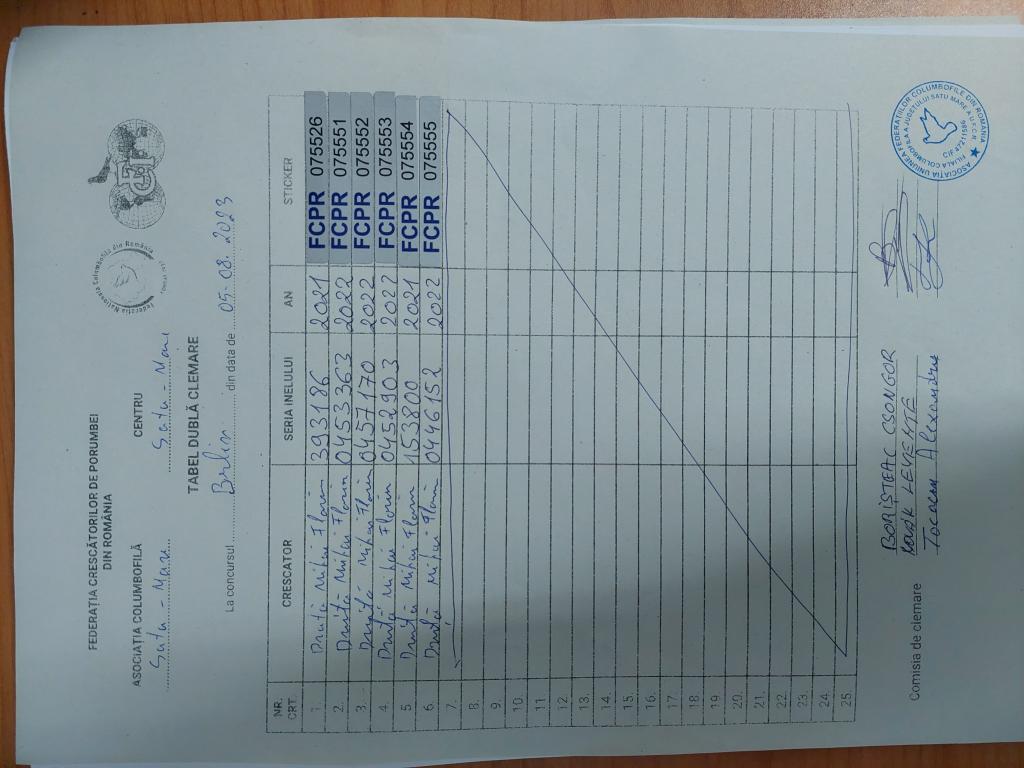 FEDERAȚIA CRESCĂTORILOR DE PORUMBEI
DIN ROMÂNIA
Federația Națională Columbofilă din România
FCPR
ASOCIAȚIA COLUMBOFILĂ CENTRU
Satu - Mare Satu - Mare
TABEL DUBLĂ CLEMARE
La concursul Berlin din data de 05-08.2023
NR. CRT. CRESCATOR SERIA INELULUI AN STICKER
1. Druță Mihai Florin 393186 2021 FCPR 075526
2. Druță Mihai Florin 0453363 2022 FCPR 075551
3. Druță Mihai Florin 0457170 2022 FCPR 075552
4. Druță Mihai Florin 0452903 2022 FCPR 075553
5. Druță Mihai Florin 153800 2021 FCPR 075554
6. Druță Mihai Florin 0446152 2022 FCPR 075555
7.
8.
9.
10.
11.
12.
13.
14.
15.
16.
17.
18.
19.
20.
21.
22.
23.
24.
25.
Comisia de clemare
BORIȘTEAC CSONGOR
LEVENTE
Tocacan Alexandru
ASOCIAȚIA UNIUNEA FEDERAȚIILOR COLUMBOFILE DIN ROMANIA
FILIALA COLUMBOFILĂ A JUDEȚULUI SATU MARE A U.F.C.R.
CIF 47211586